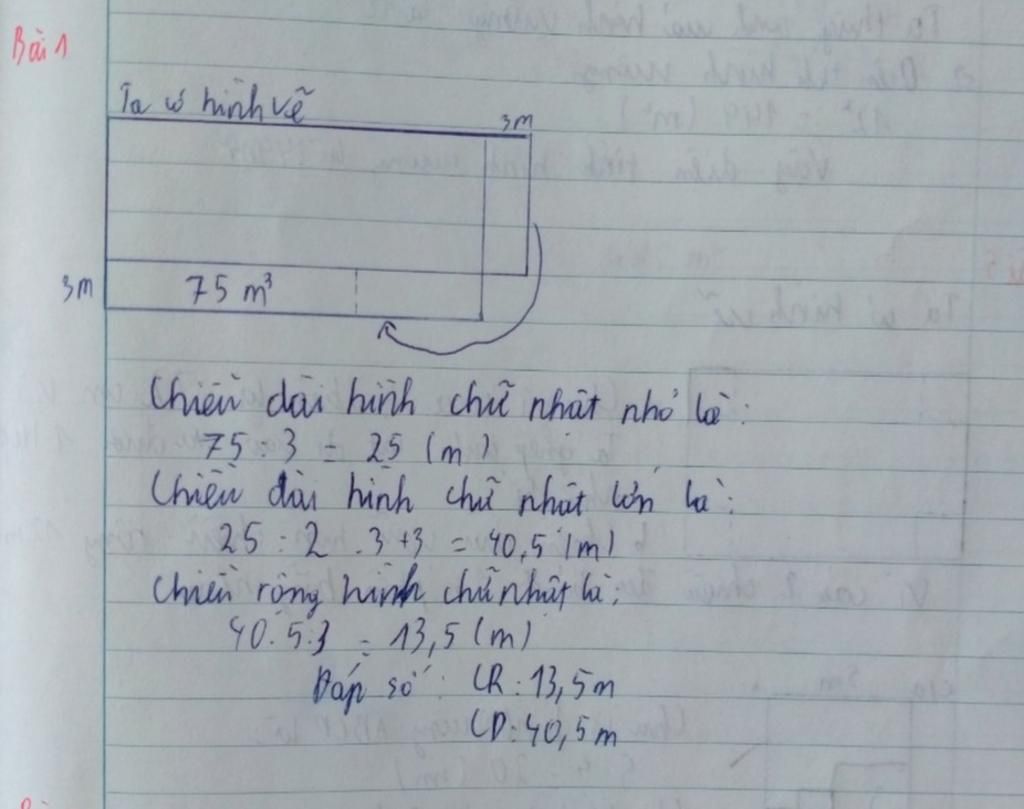 Bài 1
Ta có hình vẽ
3m
3m
75 m³
Chiều dài hình chữ nhật nhỏ là:
75 : 3 = 25 (m)
Chiều dài hình chữ nhật lớn là:
25 : 2 . 3 + 3 = 40,5 (m)
Chiều rộng hình chữ nhật là:
40.5:3 = 13,5 (m)
Đáp số: CR: 13,5m
CD: 40,5m